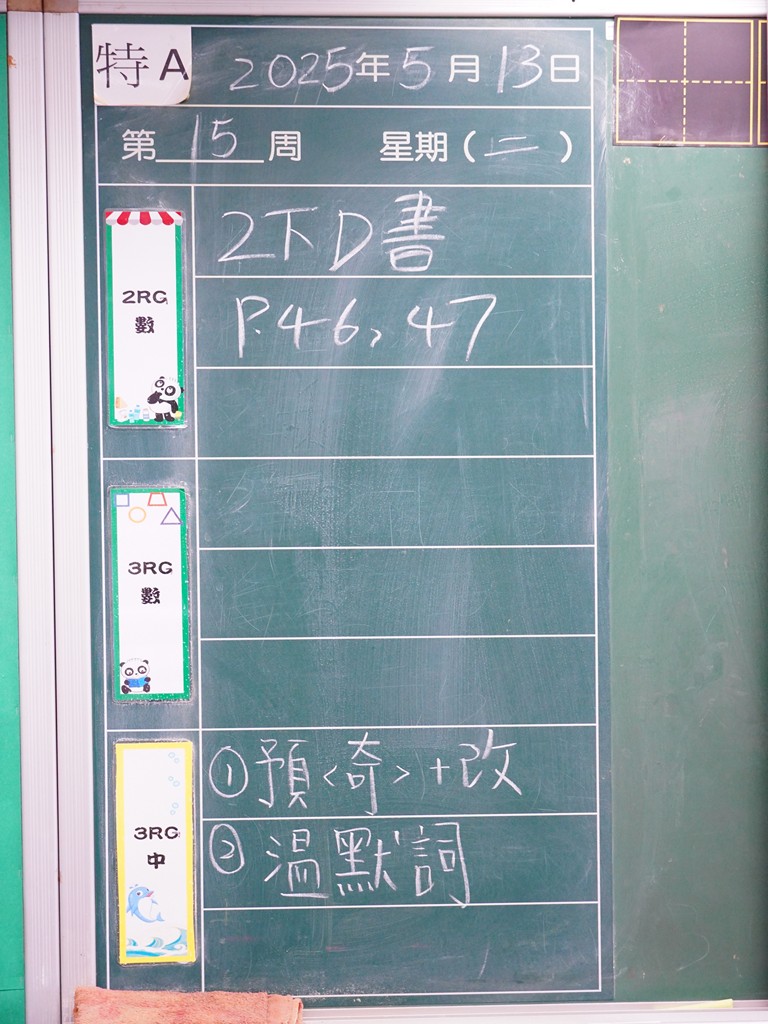 特A 2025年5月13日
第15周 星期(二)
2RG
數
2下D書
P.46, 47
3RG
數
3RG
中
①預<奇>+改
②溫默詞